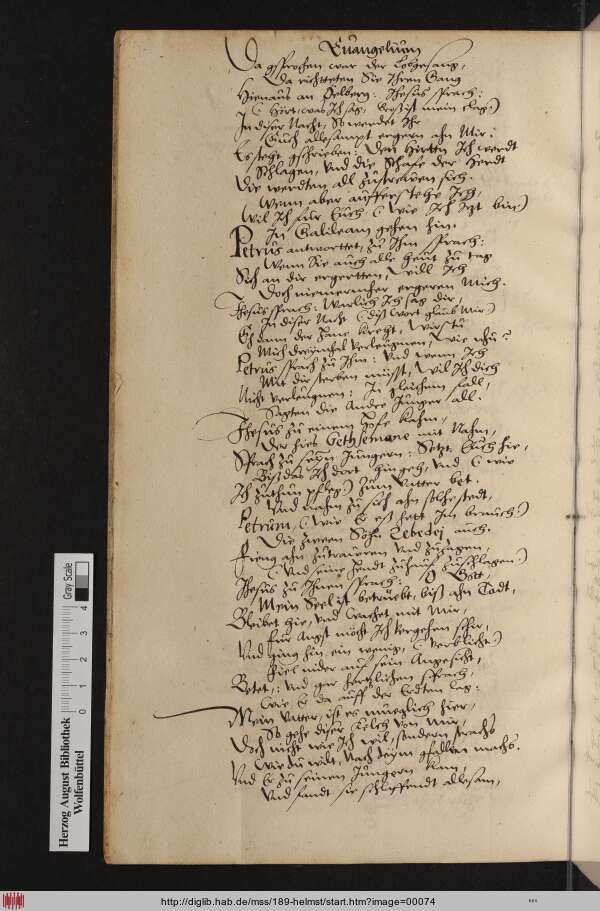 Euangelium
Da gsprochen war der Lobgesang,
Da richtteten Sie Ihren Gang
Hienaus an Ölberg: Ihesus sprach:
(Hört, was Ich sag, Es ist mein clag:)
In diser Nacht, So werdet Ihr
Euch allesampt ergern ahn Mir:
Es steht gschrieben: Den Hirttn Ich werdt
Schlagen, Und die Schafe der Herdt
Die werdten all zustrewen sich.
Wenn aber aufferstehe Ich,
Wil Ich für Euch (Wie Ich Itzt bin:)
In Galileam gehen hin.
Petrus antworttet, zu Ihm sprach:
Wenn Sie auch alle heut zu tag
Sich an dir ergertten, Will Ich
Doch niemermher ergeren Mich.
Ihesus sprach: Warlich Ich sag dir,
In diser Nacht (diß Wort glaub Mir)
Eh dann der Hane kreht, Wirstu
Mich dreymhal verleugnen, Wie nhu?
Petrus sprach zu Ihm: Und wenn Ich
Mit dir sterben müsst, Wil Ich dich
Nicht verleugnen: In gleichem fall,
Sagten die Andre Jünger all.
Ihesus zu einem Hofe kahm,
Der hies Gethsemane mit Nahm,
Sprach zu seyn Jüngern: Setzt Euch hie,
Biß das Ich dort hin geh, Und (wie
Ich zuthun pfleg) Zum Vatter bet.
Und nahm zu sich ahn solche stedt,
Petrum, (Wie Er est hett Im brauch:)
Die zween Söhn Zebedej auch.
Fieng ahn zutrawren Und zuzagen,
(Und seine Hendt zuhauf zuschlagen:)
Ihesus zu Ihnen sprach: O Gott,
Mein Seel ist betrübt, biß ahn Todt,
Bleibet hie, Und Wachet mit Mir,
Für Angst möcht Ich vergehen schir,
Und ging hin ein wenig, (Verblicht:)
Fiel nider auf sein Angesicht,
Betet,: Und gar hertzlichen sprach,
(Wie Er da auff der Erdten lag:
Mein Vatter, ist es mueglich hier,
So gehe diser Kelch von Mir,
Doch nicht wie Ich wil, sondern strachs
Wie du wilt, Nach deim gfallen machs.
Und Er zu seinen Jüngern kam,
Und fandt sie schlaffendt allesam,
Herzog August Bibliothek
Wolfenbüttel
Gray Scale
0 1 2 3 4
http://diglib.hab.de/mss/189-helmst/start.htm?image=00074